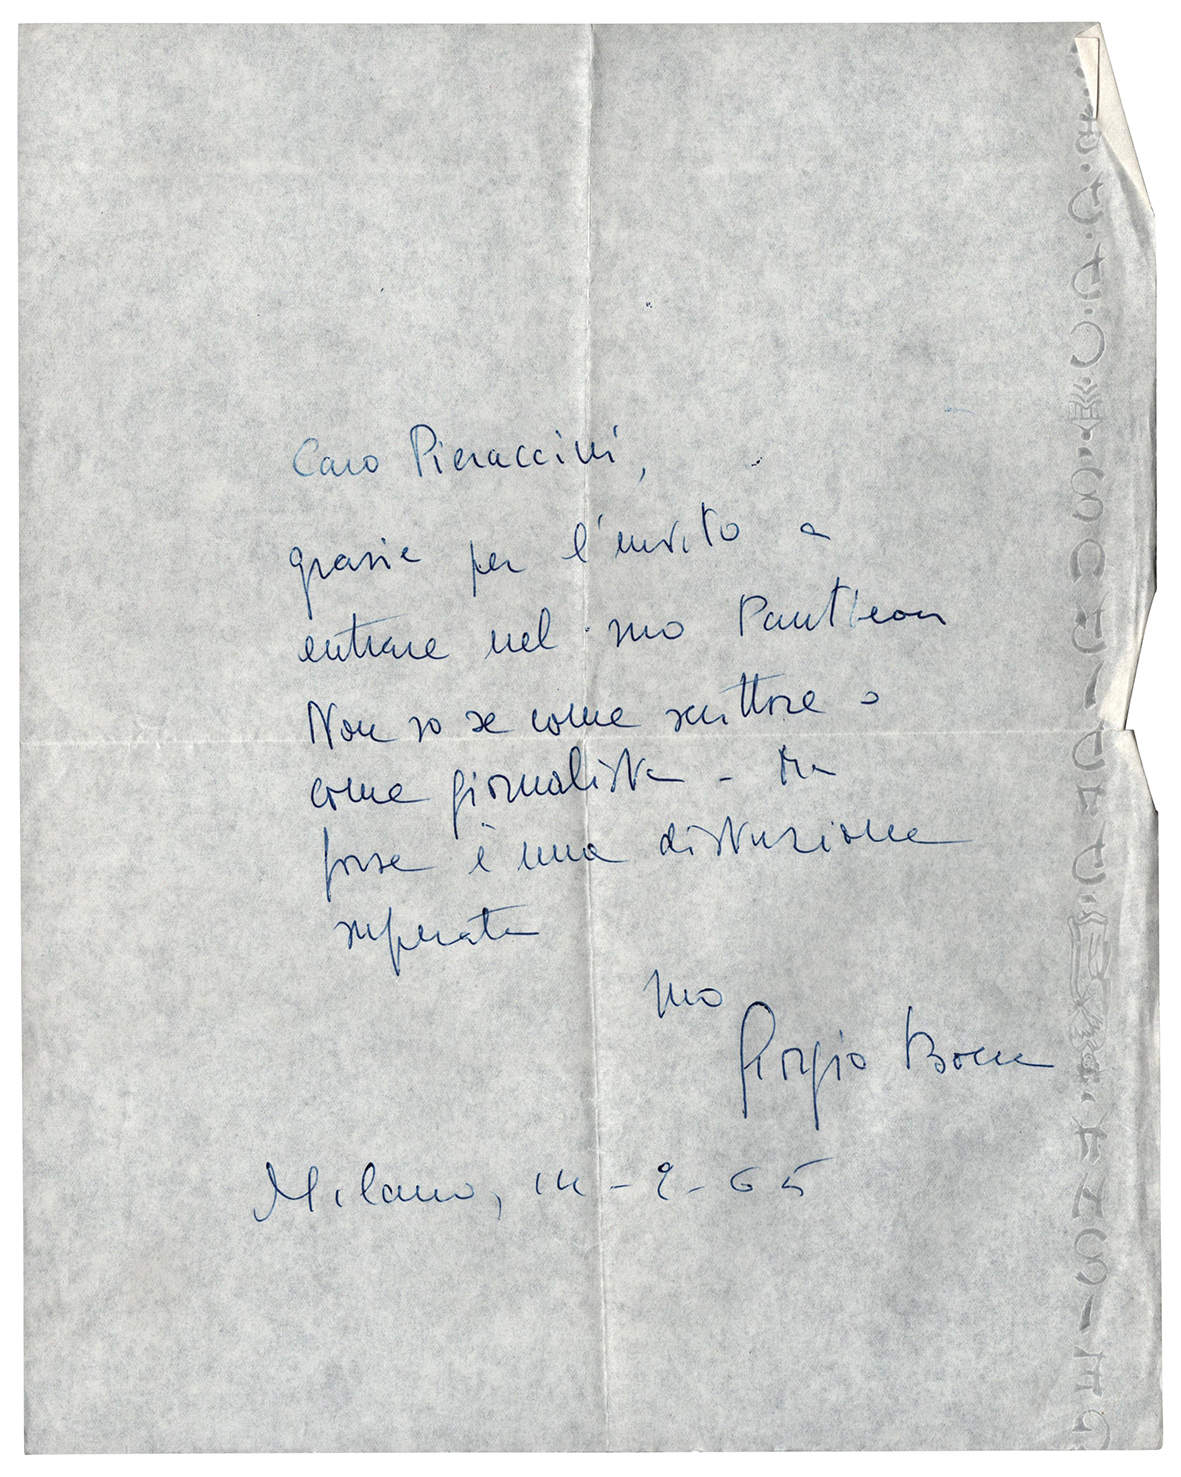 Caro Pieraccini,
grazie per l'invito a
entrare nel suo Pantheon
Non so se come scrittore o
come giornalista - Ma
forse è una distinzione
superata
suo
Giorgio Bocca
Milano, 14-9-65